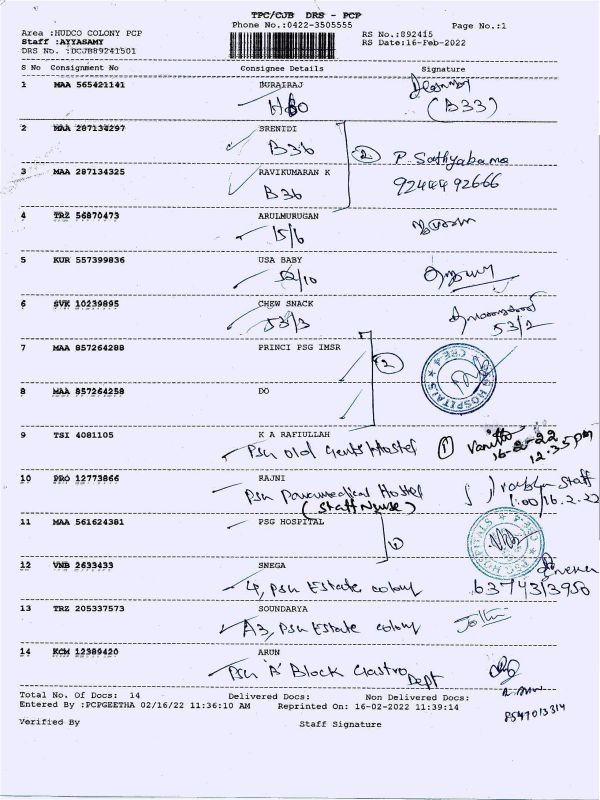 TPC/CJB DRS - PCP
Phone No.:0422-3505555
Page No.:1
Area :HUDCO COLONY PCP
RS No.:892415
Staff :AYYASAMY
RS Date:16-Feb-2022
DRS No. :DCJB89241501
S No Consignment No Consignee Details Signature
1 MAA 565421141 DURAIRAJ
(B33)
2 MAA 287134297 SRENIDI
B36
2 P. Sathyabama
3 MAA 287134325 RAVIKUMARAN K
9244492666
B36
4 TRZ 56870473 ARULMURUGAN
15/6
5 KUR 557399836 USA BABY
52/10
6 SVK 10239895 CHEW SNACK
53/3
53/2
7 MAA 857264288 PRINCI PSG IMSR
2
8 MAA 857264258 DO
9 TSI 4081105 K A RAFIULLAH
Psg Old Gents Hostel
1 Vanitha
16-2-22
12.35 pm
10 PRO 12773866 RAJNI
Psg Paramedical Hostel
(Staff Nurse)
Staff
1.00/16.2.22
11 MAA 561624381 PSG HOSPITAL
12 VNB 2633433 SNEGA
4, Psg Estate colony
6374313950
13 TRZ 205337573 SOUNDARYA
A3, Psg Estate colony
14 KCM 12389420 ARUN
Psg 'A' Block Gastro
Dept
8547013314
Total No. Of Docs: 14 Delivered Docs: Non Delivered Docs:
Entered By :PCPGEETHA 02/16/22 11:36:10 AM Reprinted On: 16-02-2022 11:39:14
Verified By Staff Signature